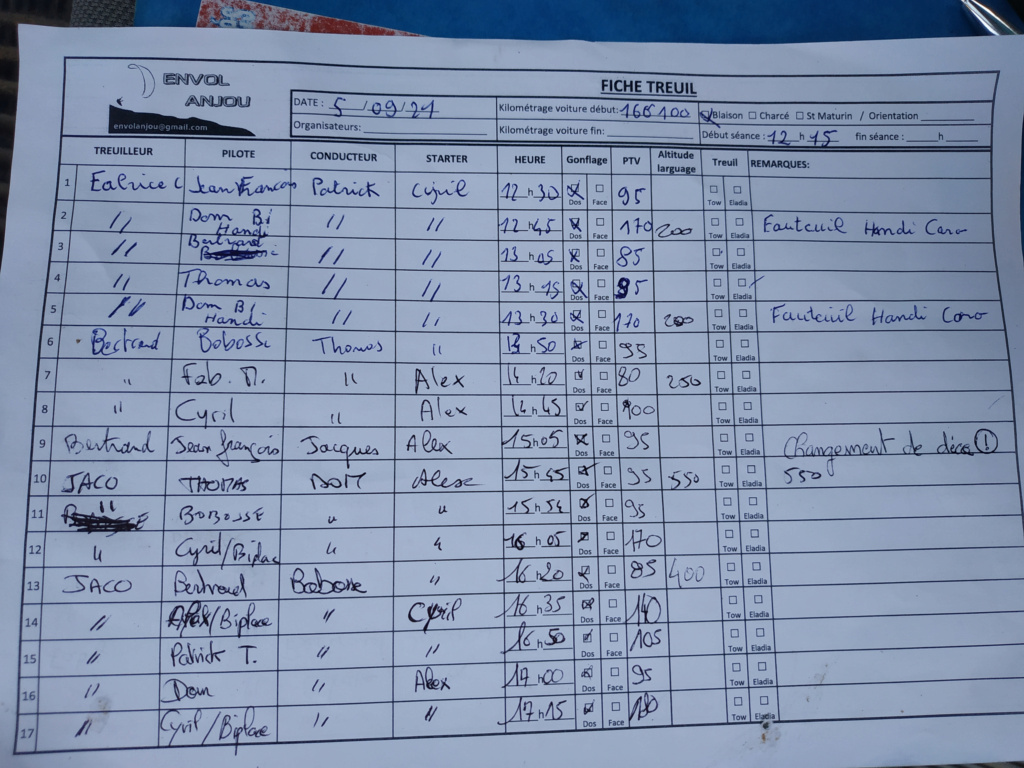 ENVOL
ANJOU
envolanjou@gmail.com
FICHE TREUIL
DATE : 5 /09/21 Kilométrage voiture début: 166100 Blaison Charcé St Maturin / Orientation
Organisateurs: Kilométrage voiture fin: Début séance : 12 h 15 fin séance : h
TREUILLEUR PILOTE CONDUCTEUR STARTER HEURE Gonflage PTV Altitude larguage Treuil REMARQUES:
1 Jean Francois Patrick Cyril 12 h 30 Dos Face 95 Tow Eladia
2 // Dom Bi Handi // // 12 h 45 Dos Face 170 200 Tow Eladia Fauteuil Handi Caro
3 // Bertrand // // 13 h 05 Dos Face 85 Tow Eladia
4 // Thomas // // 13 h 15 Dos Face 95 Tow Eladia
5 // Dom Bi Handi // // 13 h 30 Dos Face 170 200 Tow Eladia Fauteuil Handi Caro
6 Bertrand Bobosse Thomas // 13 h 50 Dos Face 95 Tow Eladia
7 // Fab. M. // Alex 14 h 20 Dos Face 80 250 Tow Eladia
8 // Cyril // Alex 14 h 45 Dos Face 100 Tow Eladia
9 Bertrand Jean françois Jacques Alex 15 h 05 Dos Face 95 Tow Eladia Changement de !
10 JACO THOMAS DOM Alexe 15 h 45 Dos Face 95 550 Tow Eladia 550
11 // BOBOSSE // // 15 h 54 Dos Face 95 Tow Eladia
12 // Cyril/Biplac // // 16 h 05 Dos Face 170 Tow Eladia
13 JACO Bertrand Bobosse // 16 h 20 Dos Face 85 400 Tow Eladia
14 // Alex/Biplace // Cyril 16 h 35 Dos Face 140 Tow Eladia
15 // Patrick T. // // 16 h 50 Dos Face 105 Tow Eladia
16 // Dom // Alex 17 h 00 Dos Face 95 Tow Eladia
17 // Cyril/Biplace // // 17 h 15 Dos Face Tow Eladia